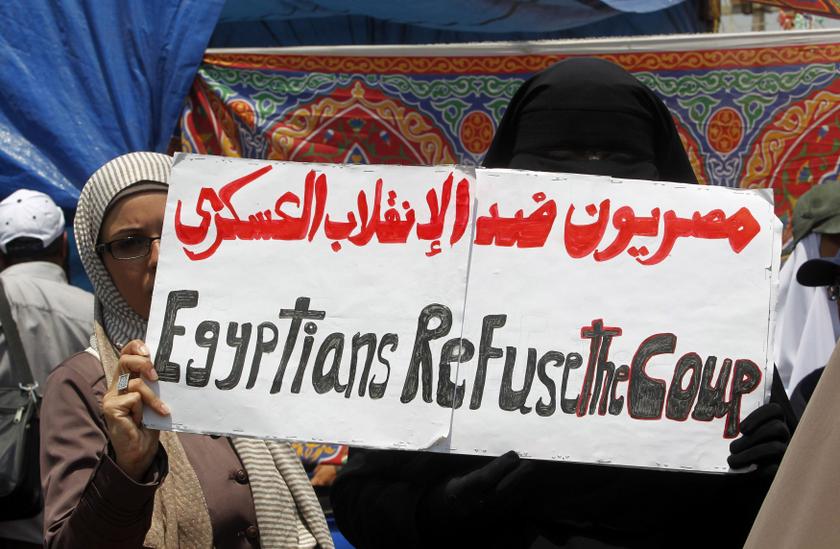 مصريون ضد الإنقلاب العسكرى
Egyptians Refuse the Coup